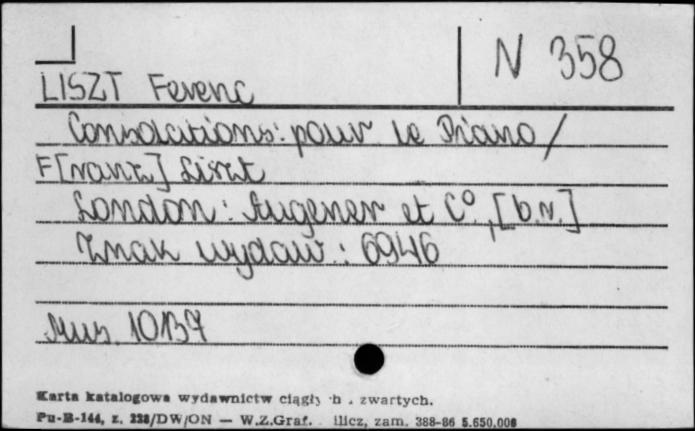 N 358
LISZT Ferenc
Consolations: pour le Piano /
F[ranz] Liszt
London: Augener et Cº, [b.r.]
Znak wydaw.: 6946
Mus. 10137
Karta katalogowa wydawnictw ciągły h . zwartych.
Pu-B-144, z. 228/DW/ON — W.Z.Graf. ilicz, zam. 388-86 5.650,000